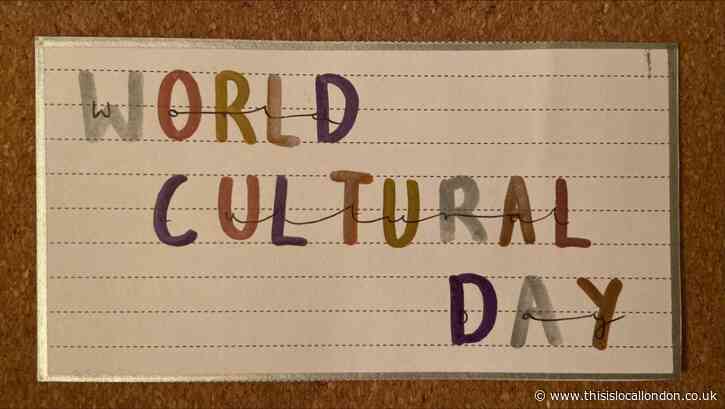 WORLD
world
CULTURAL
cultural
DAY
Day
© www.thisislocallondon.co.uk